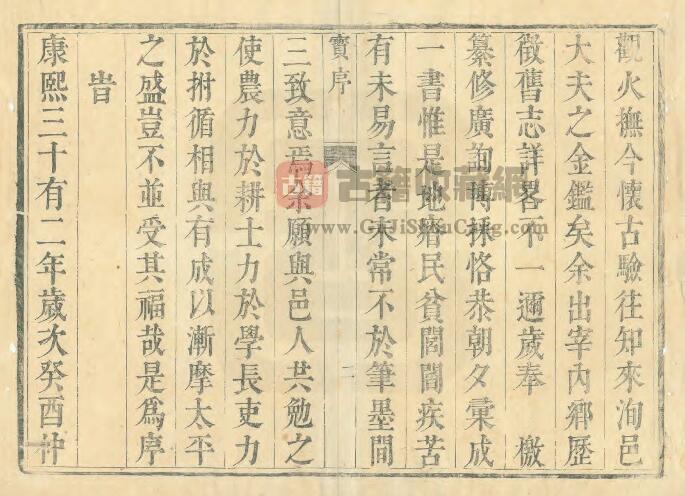 觀火撫今懷古驗往知來洵邑
大夫之金鑑矣余出宰內鄉歷
徵舊志詳畧不一邇歲奉 檄
纂修廣詢博採恪恭朝夕彙成
一書惟是地瘠民貧閭閻疾苦
有未易言者未常不於筆墨間
寶序
二
三致意焉余願與邑人共勉之
使農力於耕士力於學長吏力
於拊循相與有成以漸摩太平
之盛豈不並受其福哉是為序
旹
康熙三十有二年歲次癸酉仲
古籍 古籍收藏網
www.GuJiShouCang.com